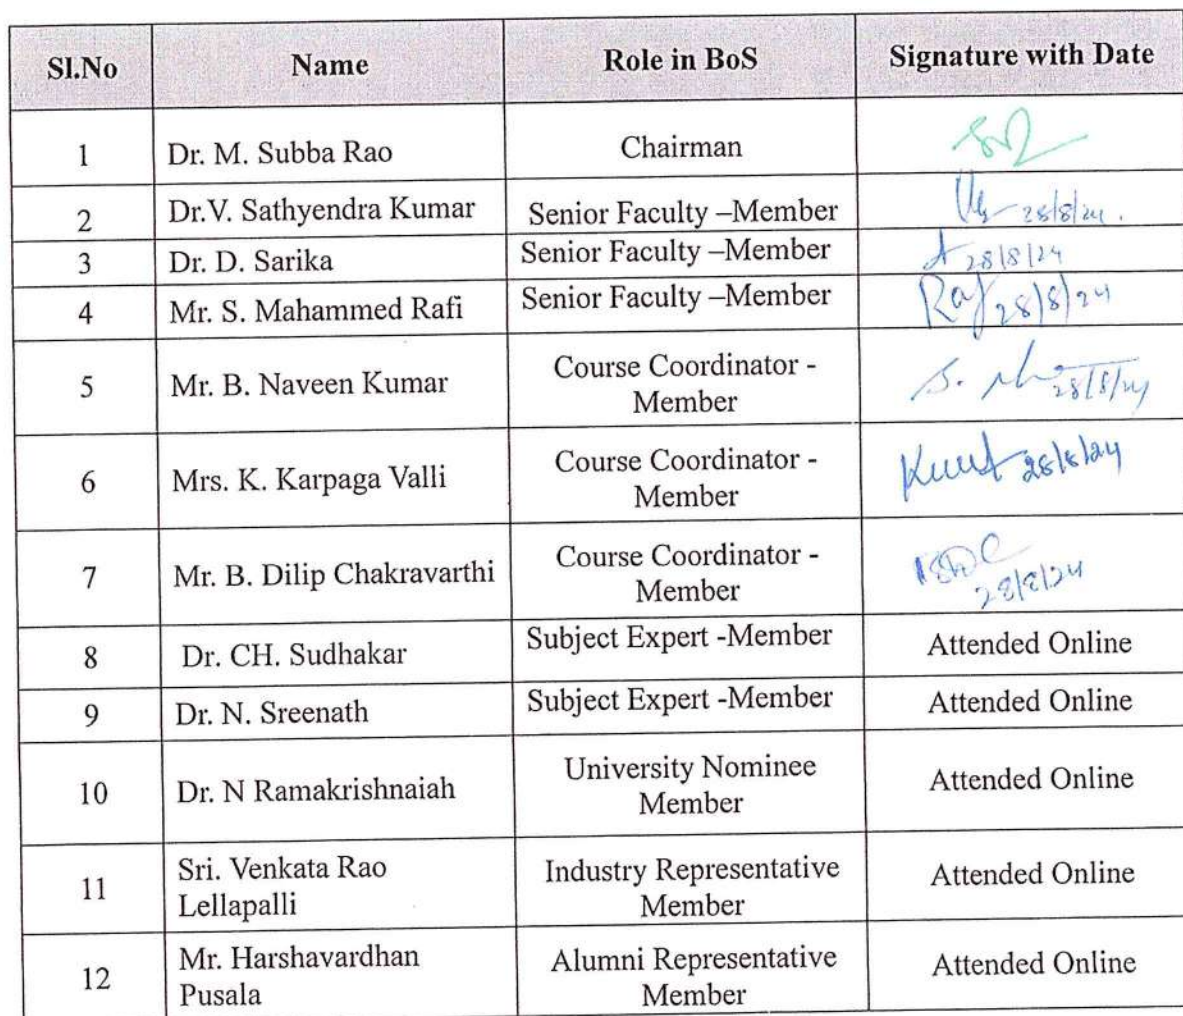 Sl.No Name Role in BoS Signature with Date
1 Dr. M. Subba Rao Chairman
2 Dr.V. Sathyendra Kumar Senior Faculty –Member 28/8/24.
3 Dr. D. Sarika Senior Faculty –Member 28/8/24
4 Mr. S. Mahammed Rafi Senior Faculty –Member Raf 28/8/24
5 Mr. B. Naveen Kumar Course Coordinator -
Member 28/8/24
6 Mrs. K. Karpaga Valli Course Coordinator -
Member 28/8/24
7 Mr. B. Dilip Chakravarthi Course Coordinator -
Member 28/8/24
8 Dr. CH. Sudhakar Subject Expert -Member Attended Online
9 Dr. N. Sreenath Subject Expert -Member Attended Online
10 Dr. N Ramakrishnaiah University Nominee
Member Attended Online
11 Sri. Venkata Rao
Lellapalli Industry Representative
Member Attended Online
12 Mr. Harshavardhan
Pusala Alumni Representative
Member Attended Online